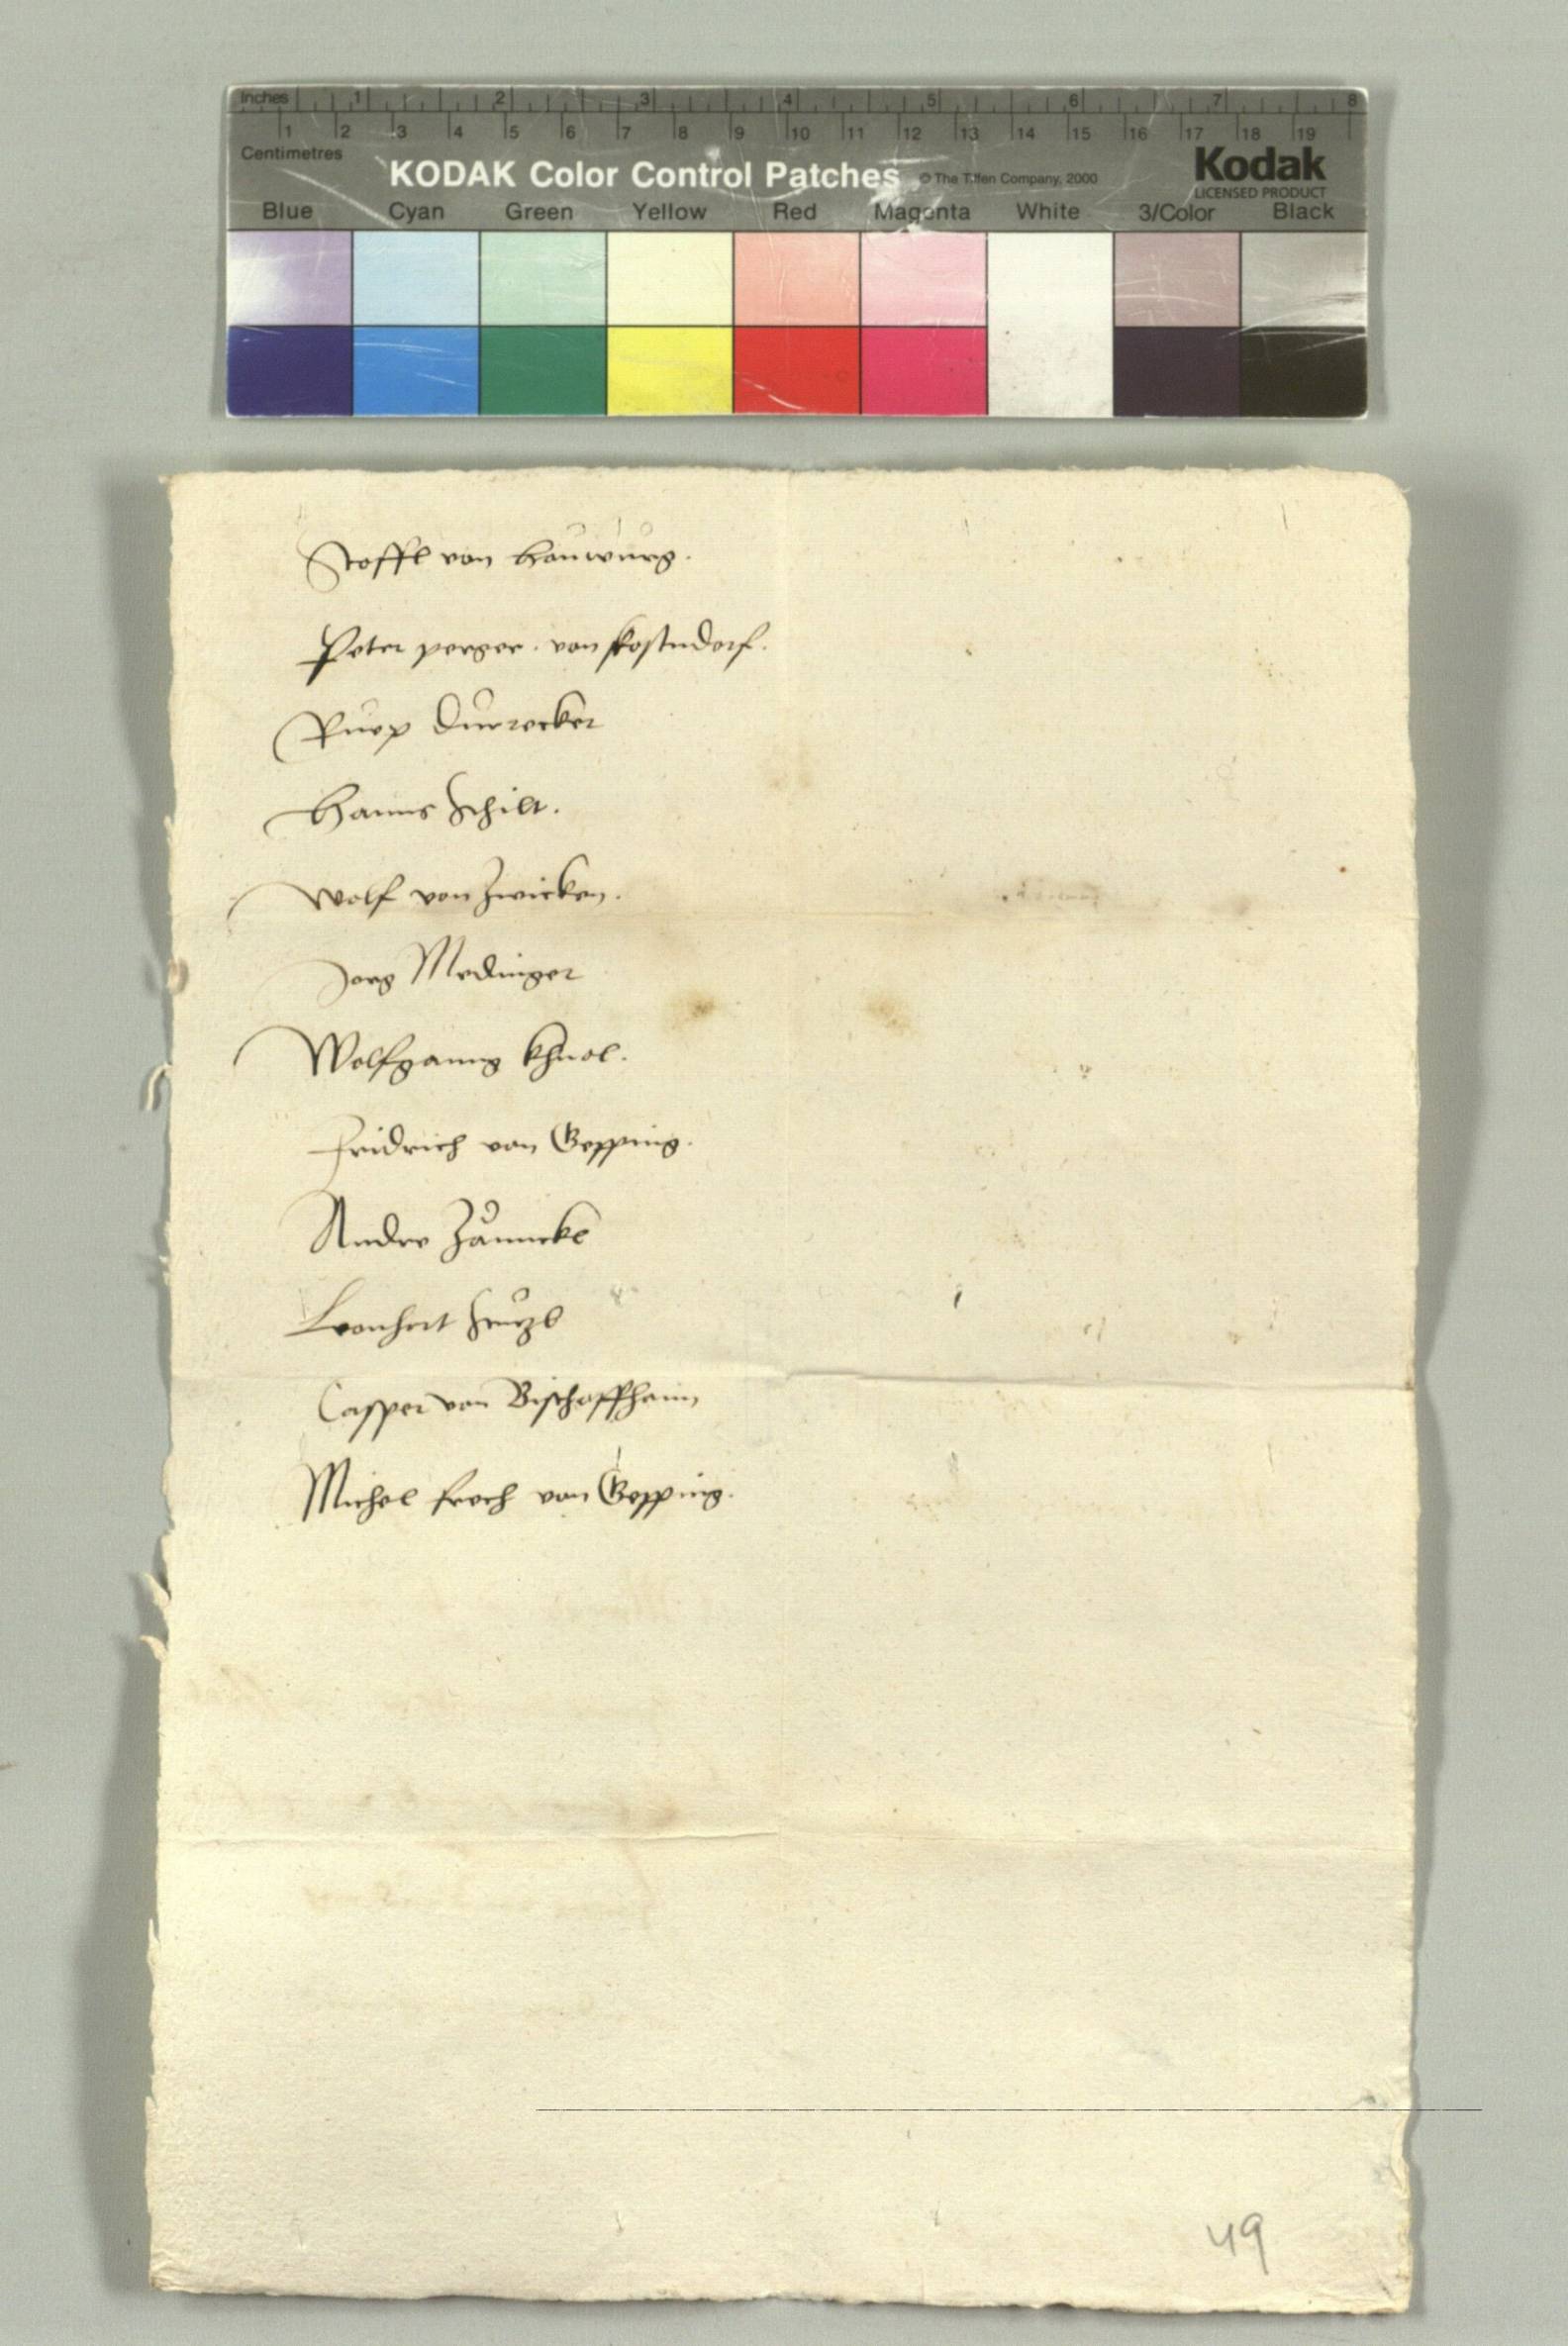 Inches 1 2 3 4 5 6 7 8
1 2 3 4 5 6 7 8 9 10 11 12 13 14 15 16 17 18 19
Centimetres
KODAK Color Control Patches © The Tiffen Company, 2000 Kodak
LICENSED PRODUCT
Blue Cyan Green Yellow Red Magenta White 3/Color Black
Stoffl von
Peter perger. von
Ruep Durrecker
Hanns Schilt.
Wolf von Zwicken.
Jorg Medinger
Wolfganng Khnol.
Fridrich von Gepping.
Andre
Leonhert
Casper von Bischoffhaim
Michel froch von Gepping.
49